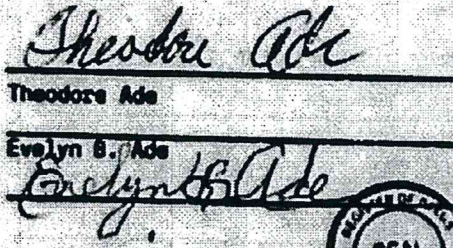 Theodore Ade
Theodore Ade
Evelyn G. Ade
Evelyn G Ade
SEAL